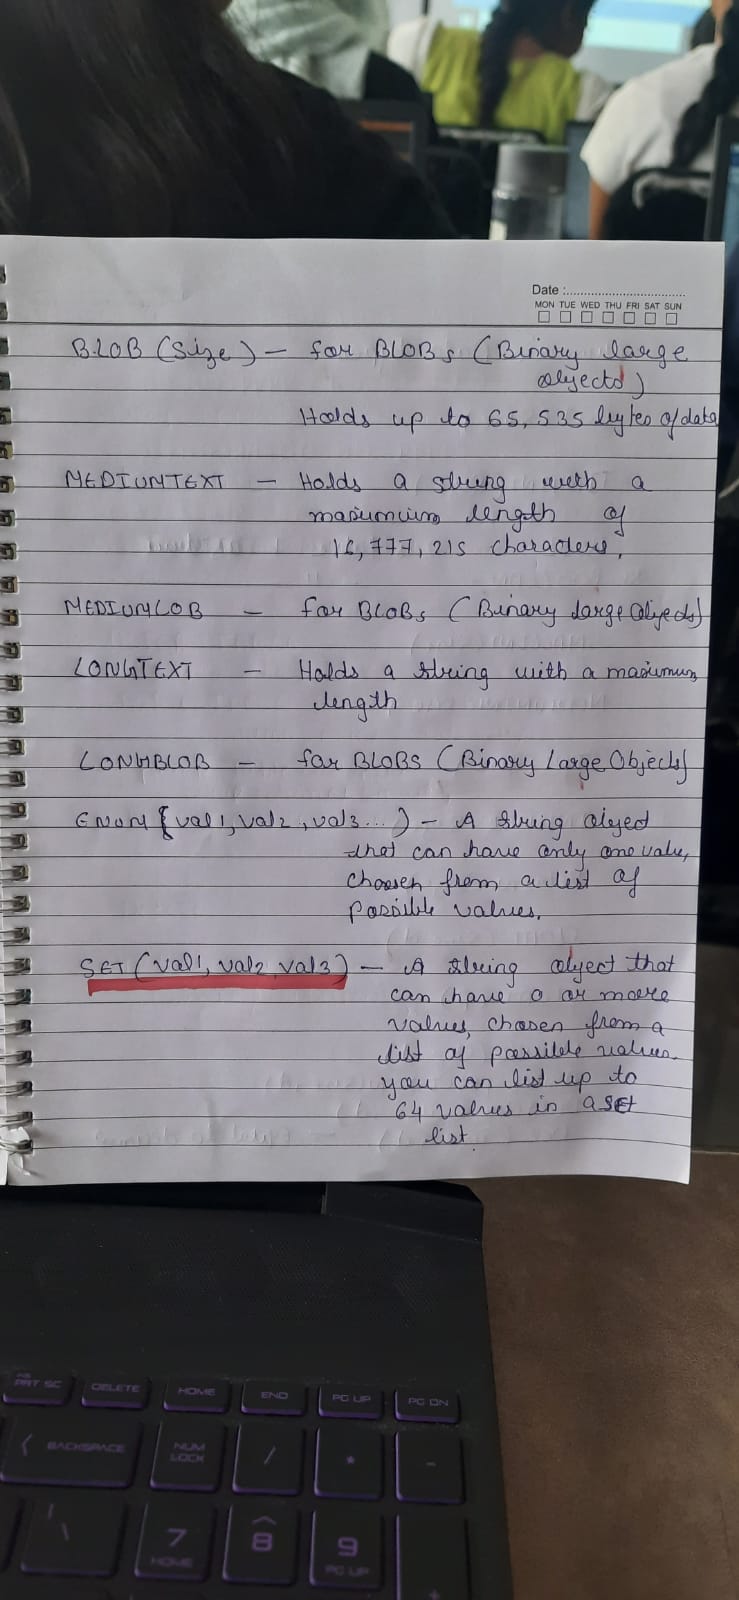 Date :
MON TUE WED THU FRI SAT SUN
BLOB (Size) - for BLOBs (Binary large
objects)
Holds up to 65,535 bytes of data
MEDIUMTEXT - Holds a string with a
maximum length of
16,777,215 characters.
MEDIUMLOB - for BLOBs (Binary large Objects)
LONGTEXT - Holds a string with a maximum
length
LONGBLOB - for BLOBS (Binary Large Objects)
ENUM (val1, val2, val3...) - A string object
that can have only one value,
choosen from a list of
possible values.
SET (val1, val2, val3) - A string object that
can have 0 or more
values, chosen from a
list of possible values.
you can list up to
64 values in a SET
list.
PRT SC DELETE HOME END PG UP PG DN
BACKSPACE NUM LOCK / * -
\ 7 8 9 +
HOME PG UP